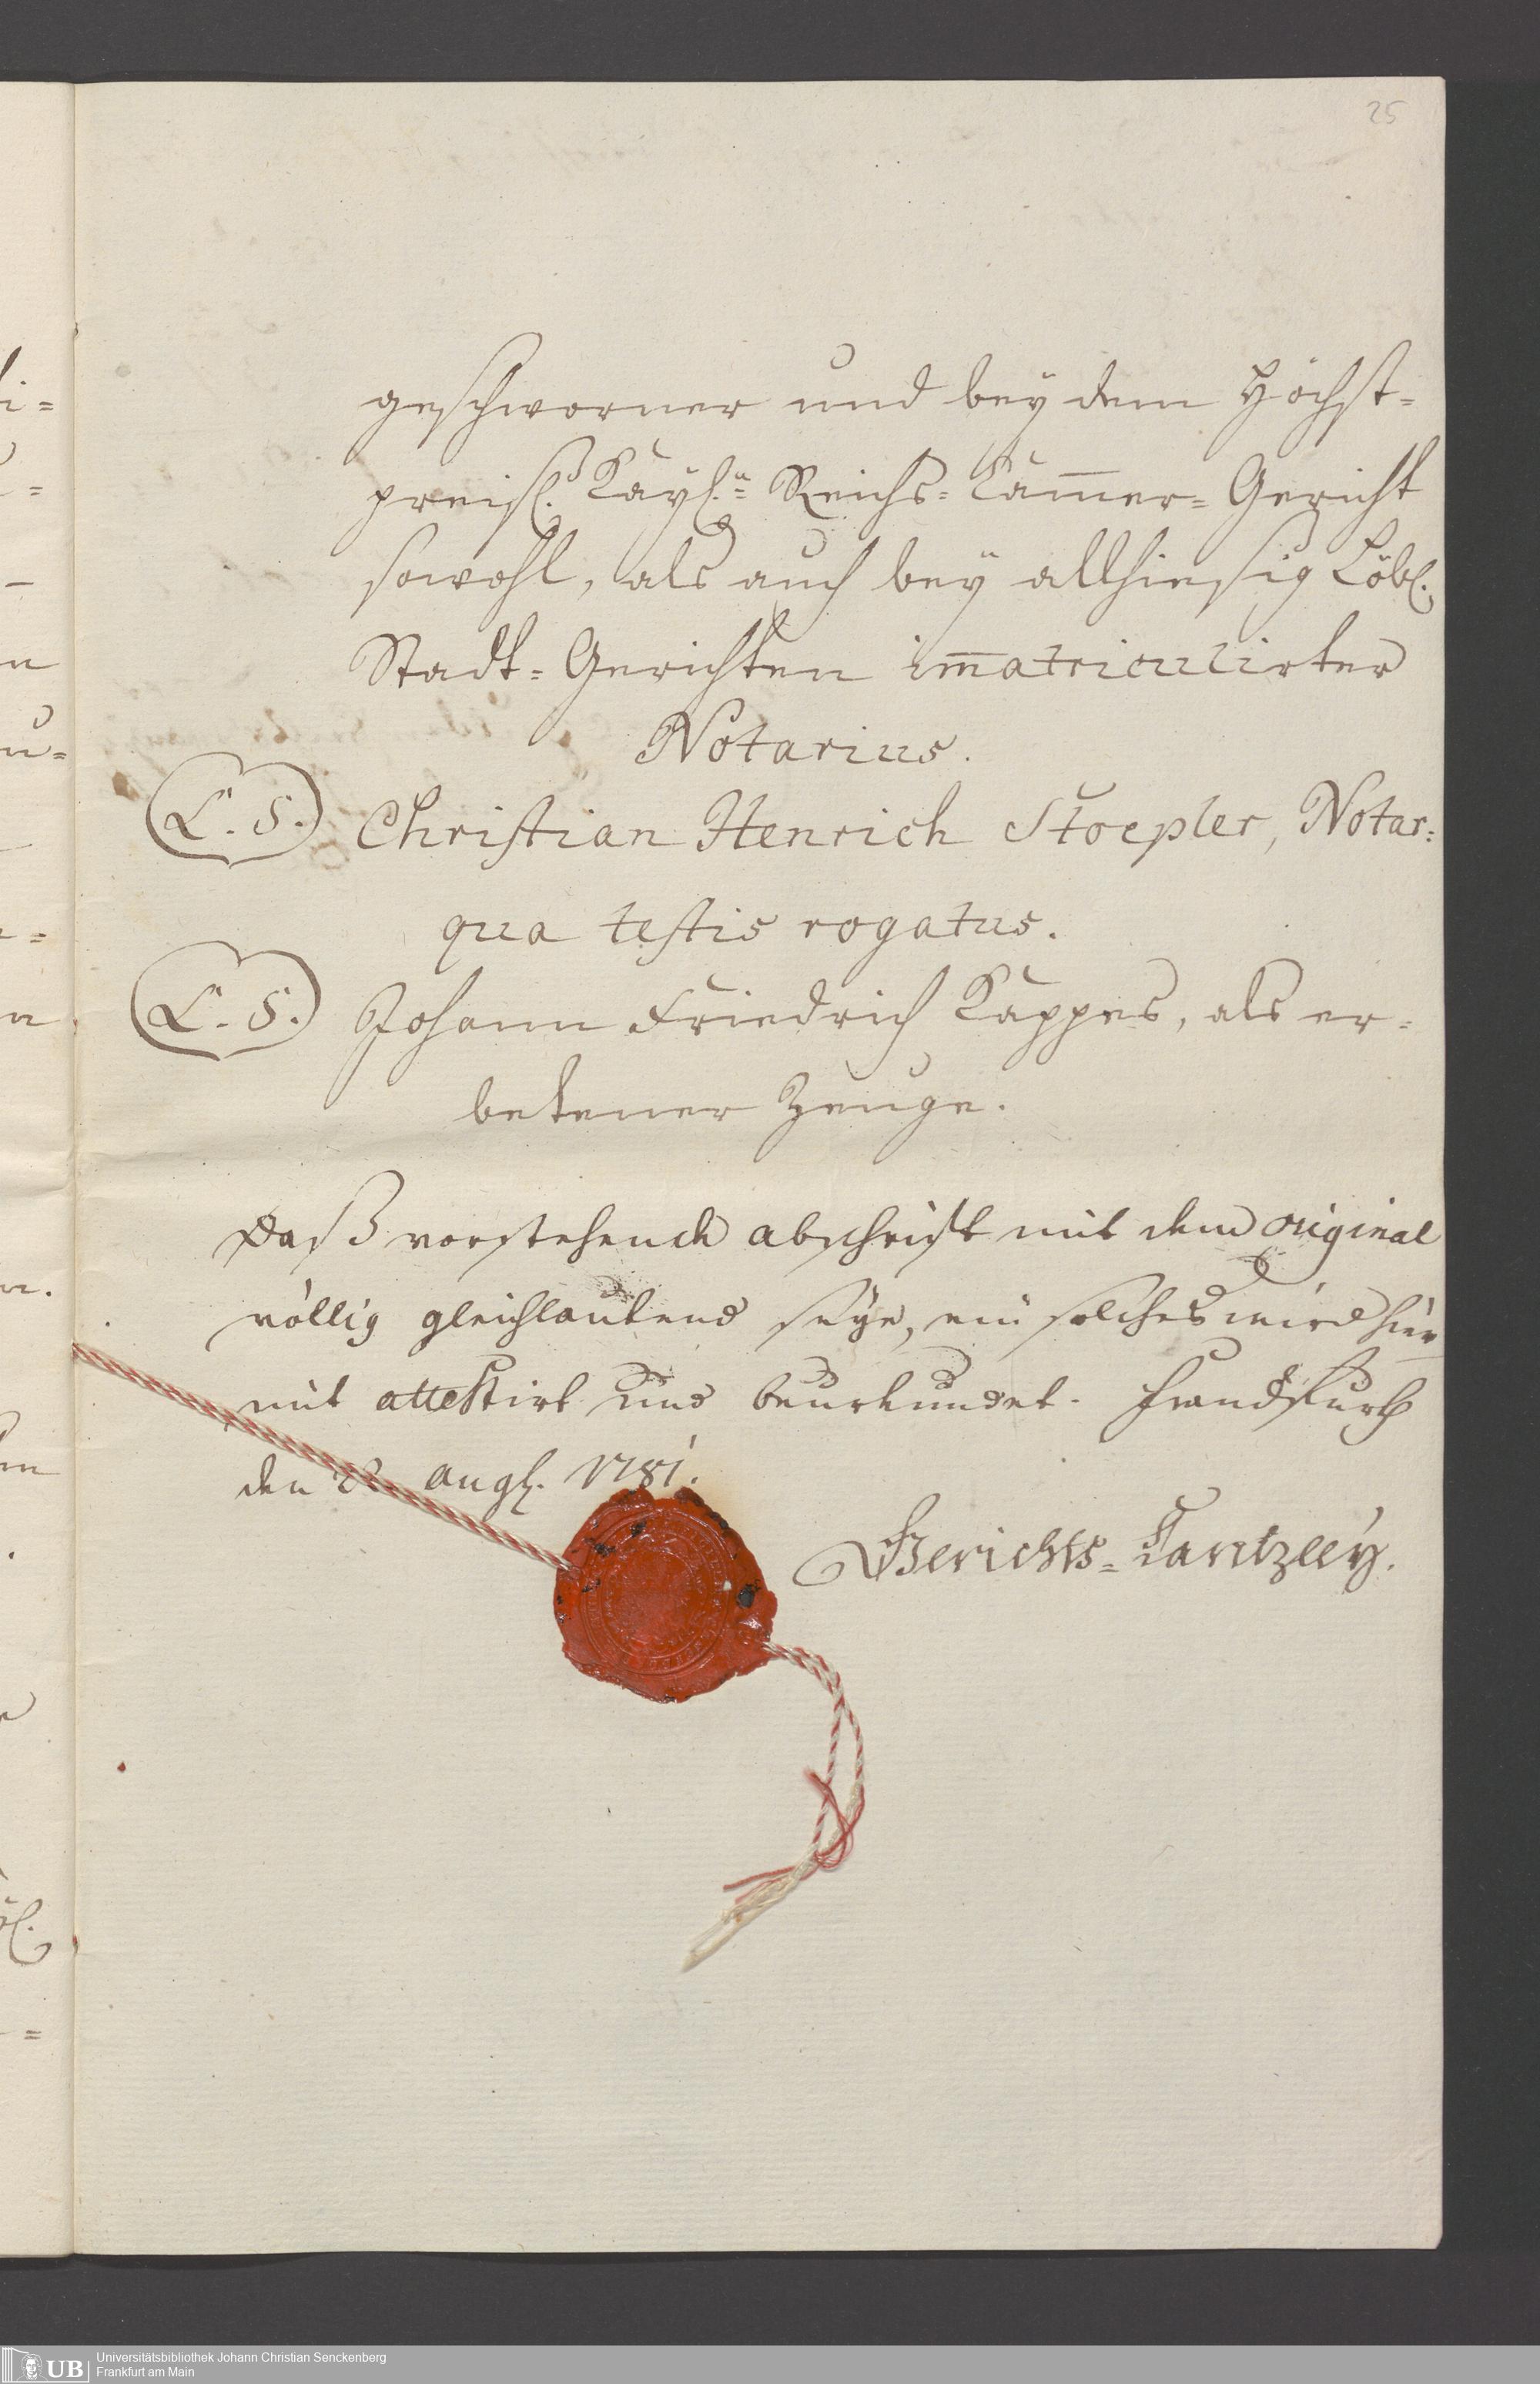 25
geschworner und bey dem Höchst=
preisl. Kayl.n Reichs=Cam̄er=Gericht
sowohl, als auch bey allhiesig Löbl.
Stadt=Gerichten im̄atriculirter
Notarius.
(L. S.) Christian Henrich Stoepler, Notar:
qua testis rogatus.
(L. S.) Johann Friedrich Kappes, als er=
betener Zeuge.
Daß vorstehende abschrift mit dem original
völlig gleichlautend seye, ein solches wird hier
mit attestirt und beurkundet. Franckfurth
den augl. 1781.
Gerichts=Cantzley.
UB Universitätsbibliothek Johann Christian Senckenberg
Frankfurt am Main